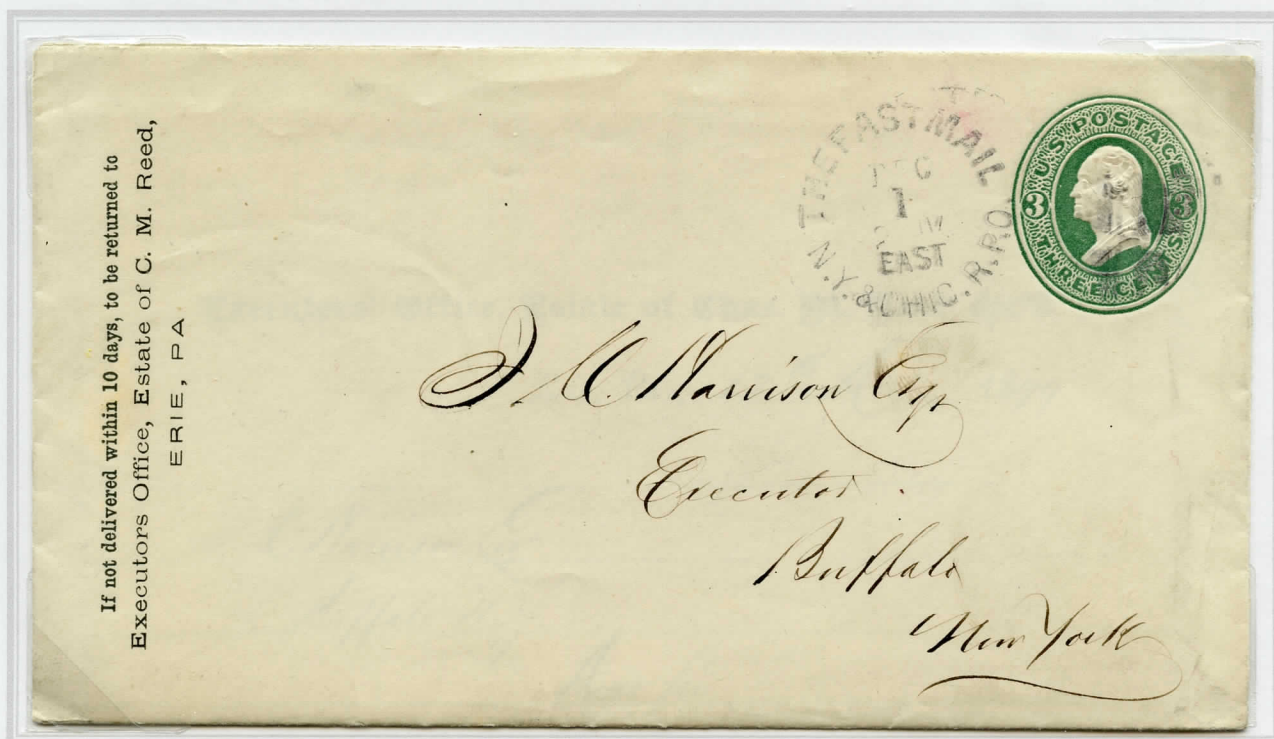 If not delivered within 10 days, to be returned to
Executors Office, Estate of C. M. Reed,
ERIE, PA
THE FAST MAIL
DEC
1
EAST
N.Y. & CHIC. R.P.O.
U.S. POSTAGE
3 3
THREE CENTS
J C Harrison Esqr
Executor
Buffalo
New York